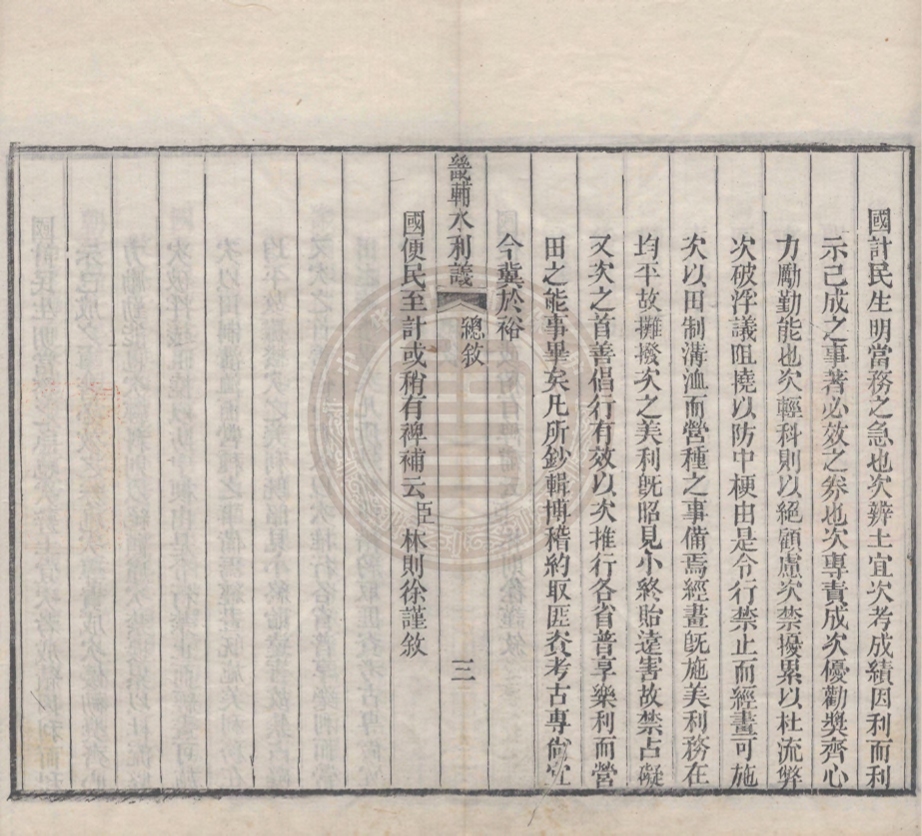 國計民生明當務之急也次辨土宜次考成績因利而利
示已成之事著必效之券也次專責成次優勸獎齊心
力勵勤能也次輕科則以絕顧慮次禁擾累以杜流弊
次破浮議阻撓以防中梗由是令行禁止而經畫可施
次以田制溝洫而營種之事備焉經畫旣施美利務在
均平故攤撥次之美利旣昭見小終貽遠害故禁占礙
又次之首善倡行有效以次推行各省普享樂利而營
田之能事畢矣凡所鈔輯博稽約取匪資考古專尙宜
今冀於裕
畿輔水利議 總敘 三
國便民至計或稍有裨補云臣林則徐謹敘